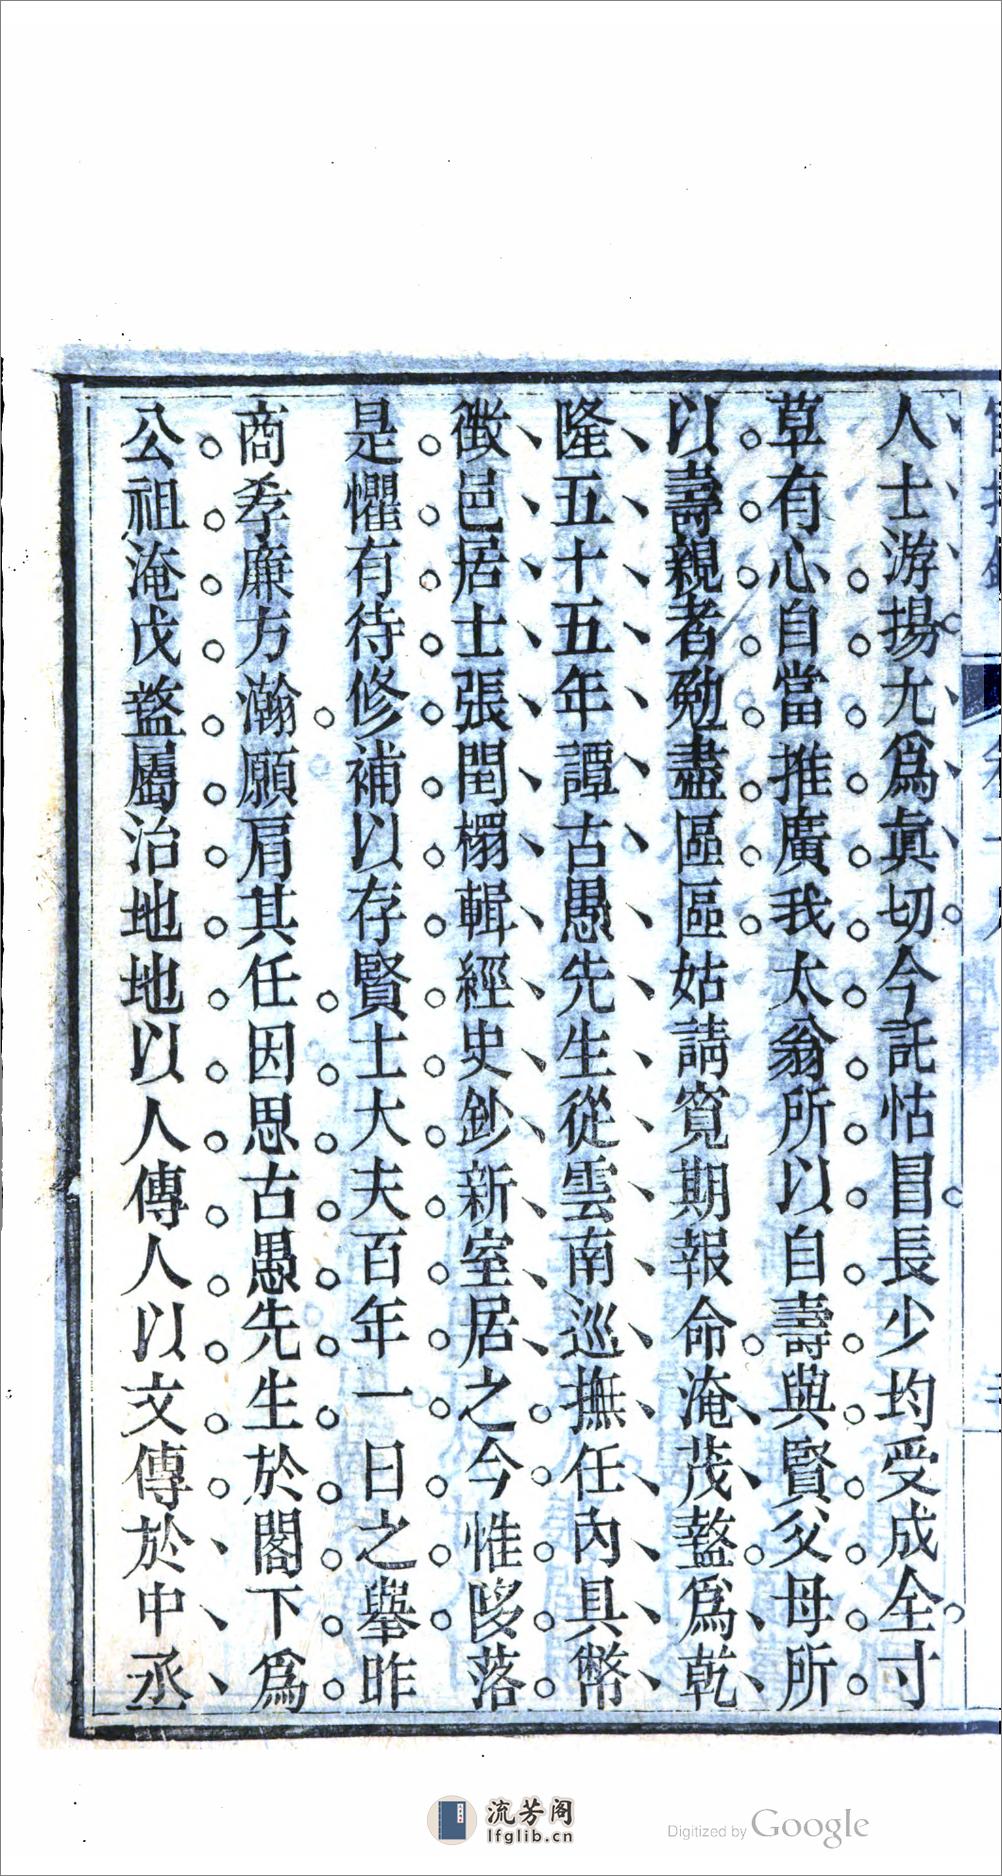 人士游揚尤爲眞切今託怙冒長少均受成全寸
草有心自當推廣我太翁所以自壽與賢父母所
以壽親者勉盡區區姑請寬期報命淹茂盩爲乾
隆五十五年譚古愚先生從雲南巡撫任內具幣
徴邑居士張閏榻輯經史鈔新室居之今惟陊落
是懼有待修補以存賢士大夫百年一日之舉昨
商孝廉方瀚願肩其任因思古愚先生於閣下爲
公祖淹戊盩屬治地地以人傳人以文傳於中丞
流芳阁
lfglib.cn
Digitized by Google